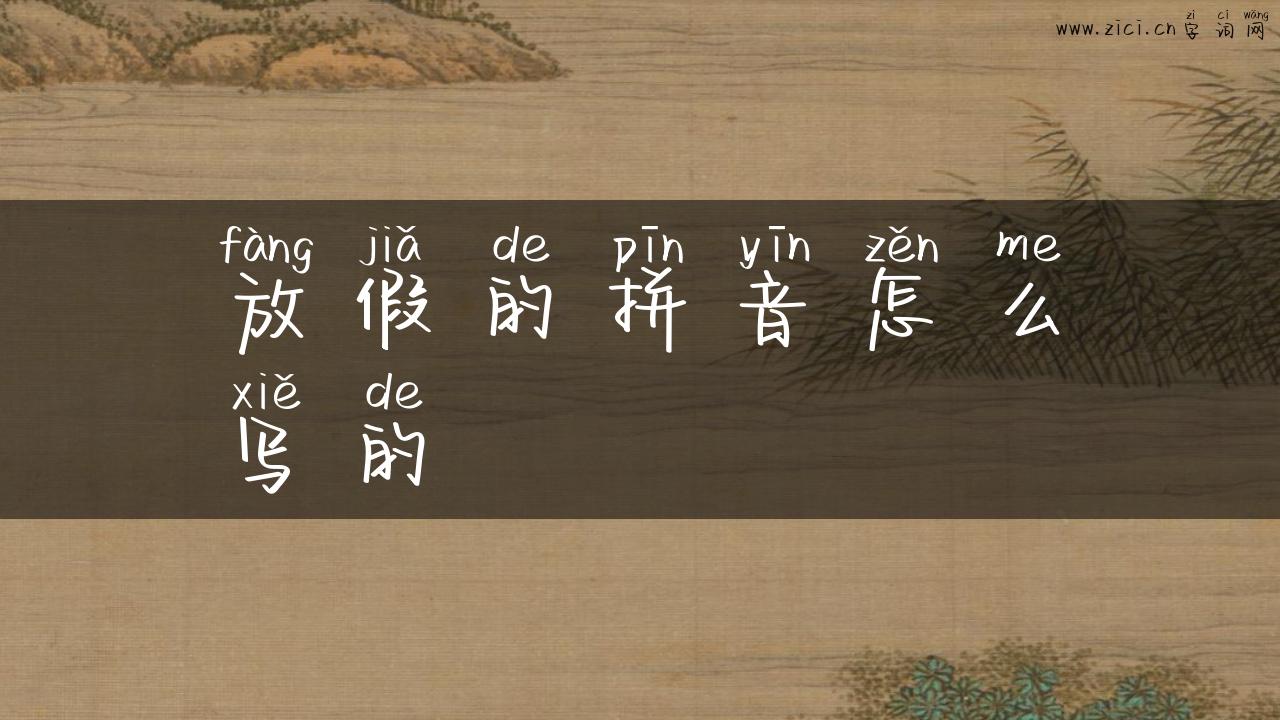 zì cí wǎng
www.zici.cn 字词网
fàng jiǎ de pīn yīn zěn me
放假的拼音怎么
xiě de
写的